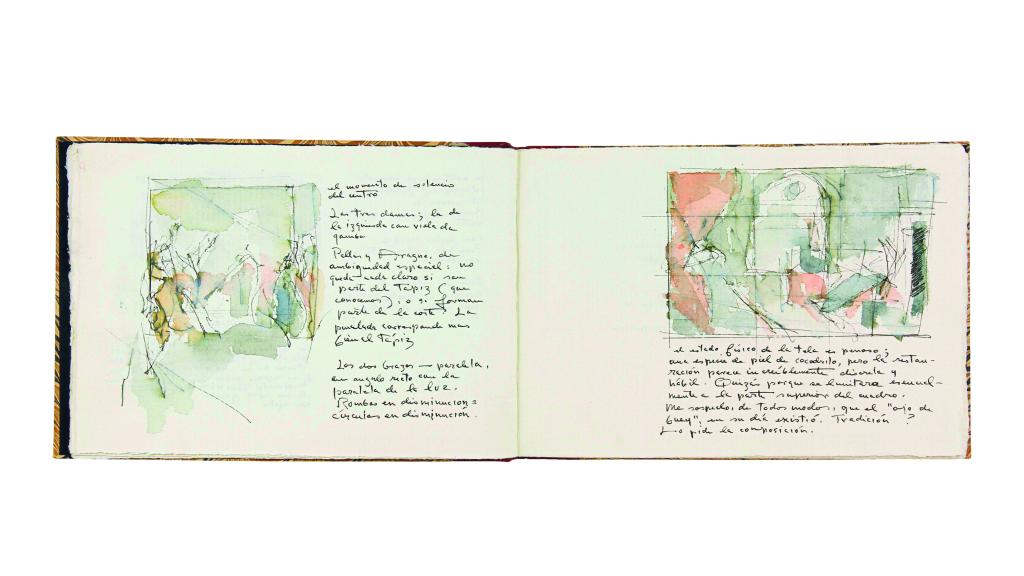 el momento de silencio
del centro
Las tres damas; la de
la izquierda con viola da
gamba
Pallas y Aragne, de
ambigüedad espacial: no
queda nada claro si son
parte del Tapiz (que
conocemos), o si forman
parte de la corte. La
pincelada corresponde mas
bien al Tápiz
Los dos brazos — paralela,
en angulo recto con la
paralela de la luz.
Rombos en disminucion =
circulos en disminucion.
el estado físico de la tela es penoso;
una especie de piel de cocodrilo, pero la restau-
ración parece increíblemente discreta y
hábil. Quizás porque se limitara esencial-
mente a la parte superior del cuadro.
Me sospecho, de todos modos, que el "ojo de
buey", en su día existió. Tradición ?
Lo pide la composición.